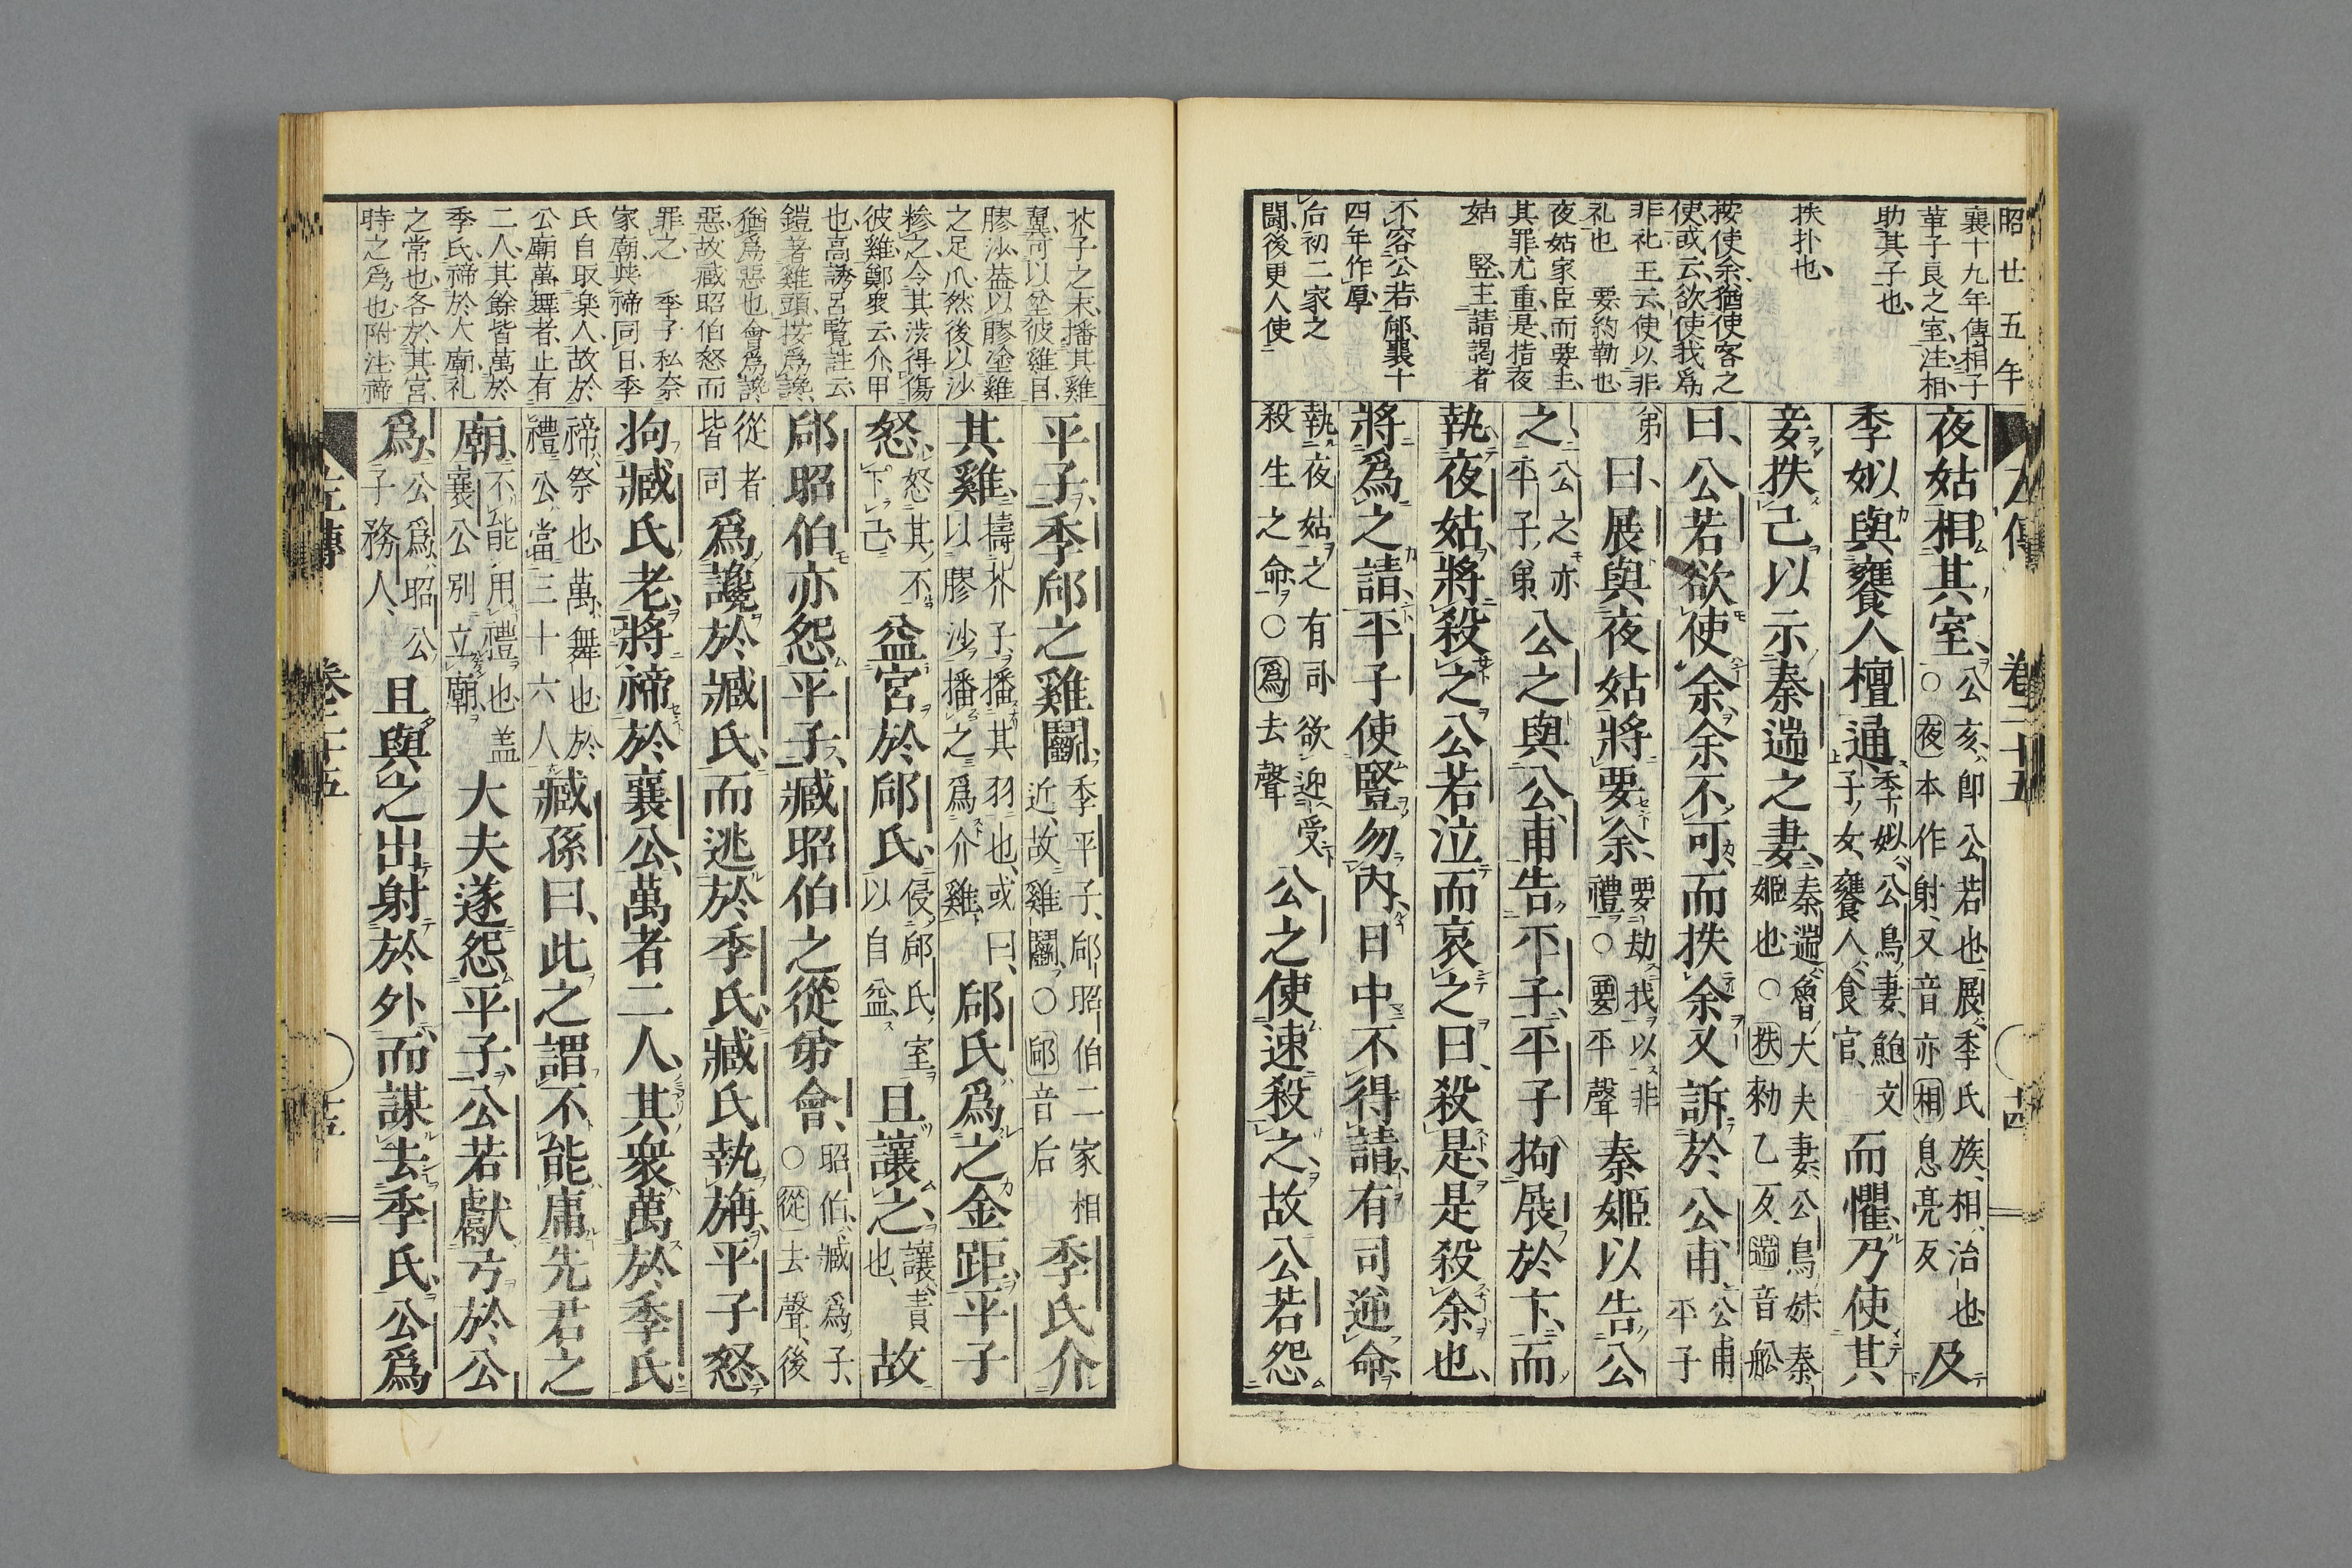 昭廿五年
襄十九年傳相子
華子良之室注相
助其子也
抶扑也
按使余猶使客之
使或云欲使我爲
非礼王云使以非
礼也　要約勒也
夜姑家臣而要主
其罪尤重是指夜
姑　豎主請謁者
不容公若郈襄十
四年作厚
后初二家之
闘後更人使
左傳　卷二十五　十四
夜姑相其室
公亥即公若也展季氏族相治也
○夜本作射又音亦相息亮反
及
季姒與饔人檀通
季姒公鳥妻鮑文
子女饔人食官
而懼乃使其
妾抶己以示秦遄之妻
秦遄魯大夫妻公鳥妹秦
姬也○抶勑乙反遄音舩
曰公若欲使余余不可而抶余又訴於公甫
公甫
平子
弟
曰展與夜姑將要余
要劫我以非
禮○要平聲
秦姬以告公
之
公之亦
平子弟
公之與公甫告平子平子拘展於卞而
執夜姑將殺之公若泣而哀之曰殺是是殺余也
將爲之請平子使豎勿內日中不得請有司逆命
執夜姑之有司欲迎受
殺生之命○爲去聲
公之使速殺之故公若怨
芥子之末播其雞
翼可以坌彼雞目
膠沙蓋以膠塗雞
之足爪然後以沙
糝之令其澁得傷
彼雞鄭衆云介甲
也高誘呂覧註云
鎧著雞頭按爲讒
猶爲惡也會爲讒
惡故臧昭伯怒而
罪之　季子私祭
家廟與禘同日季
氏自取楽人故於
公廟萬舞者止有
二人其餘皆萬於
季氏禘於大廟礼
之常也各於其宮
時之爲也附注禘
平子季郈之雞鬭
季平子郈昭伯二家相
近故雞鬭○郈音后
季氏介
其雞
擣芥子播其羽也或曰
以膠沙播之爲介雞
郈氏爲之金距平子
怒
怒其不
下己
益宮於郈氏
侵郈氏室
以自益
且讓之
讓責
也
故
郈昭伯亦怨平子臧昭伯之從弟會
昭伯臧爲子
○從去聲後
從者
皆同
爲讒於臧氏而逃於季氏臧氏執旃平子怒
拘臧氏老將禘於襄公萬者二人其衆萬於季氏
禘祭也萬舞也於
禮公當三十六人
臧孫曰此之謂不能庸先君之
廟
不能用禮也盖
襄公別立廟
大夫遂怨平子公若獻弓於公
爲
公爲昭公
子務人
且與之出射於外而謀去季氏公爲
左傳　卷二十五　十五